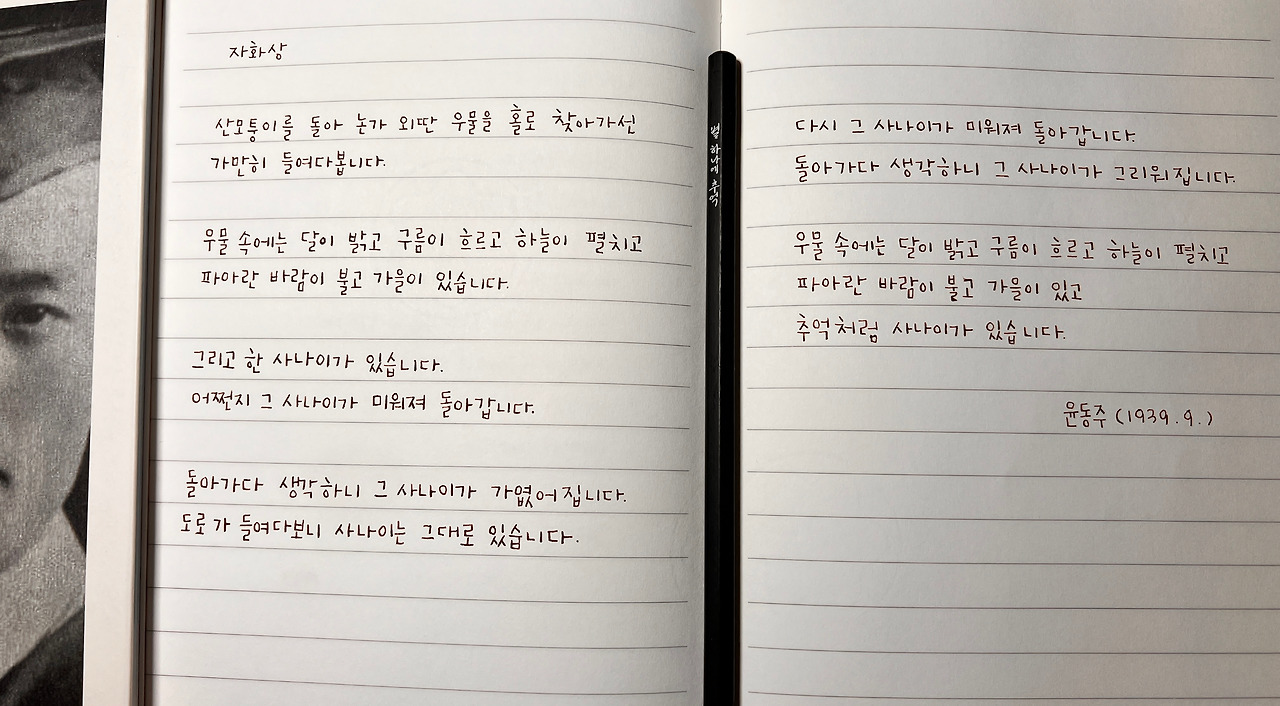 자화상
산모퉁이를 돌아 논가 외딴 우물을 홀로 찾아가선
가만히 들여다봅니다.
우물 속에는 달이 밝고 구름이 흐르고 하늘이 펼치고
파아란 바람이 불고 가을이 있습니다.
그리고 한 사나이가 있습니다.
어쩐지 그 사나이가 미워져 돌아갑니다.
돌아가다 생각하니 그 사나이가 가엾어집니다.
도로 가 들여다보니 사나이는 그대로 있습니다.
별 하나에 추억
다시 그 사나이가 미워져 돌아갑니다.
돌아가다 생각하니 그 사나이가 그리워집니다.
우물 속에는 달이 밝고 구름이 흐르고 하늘이 펼치고
파아란 바람이 불고 가을이 있고
추억처럼 사나이가 있습니다.
윤동주 (1939.9.)